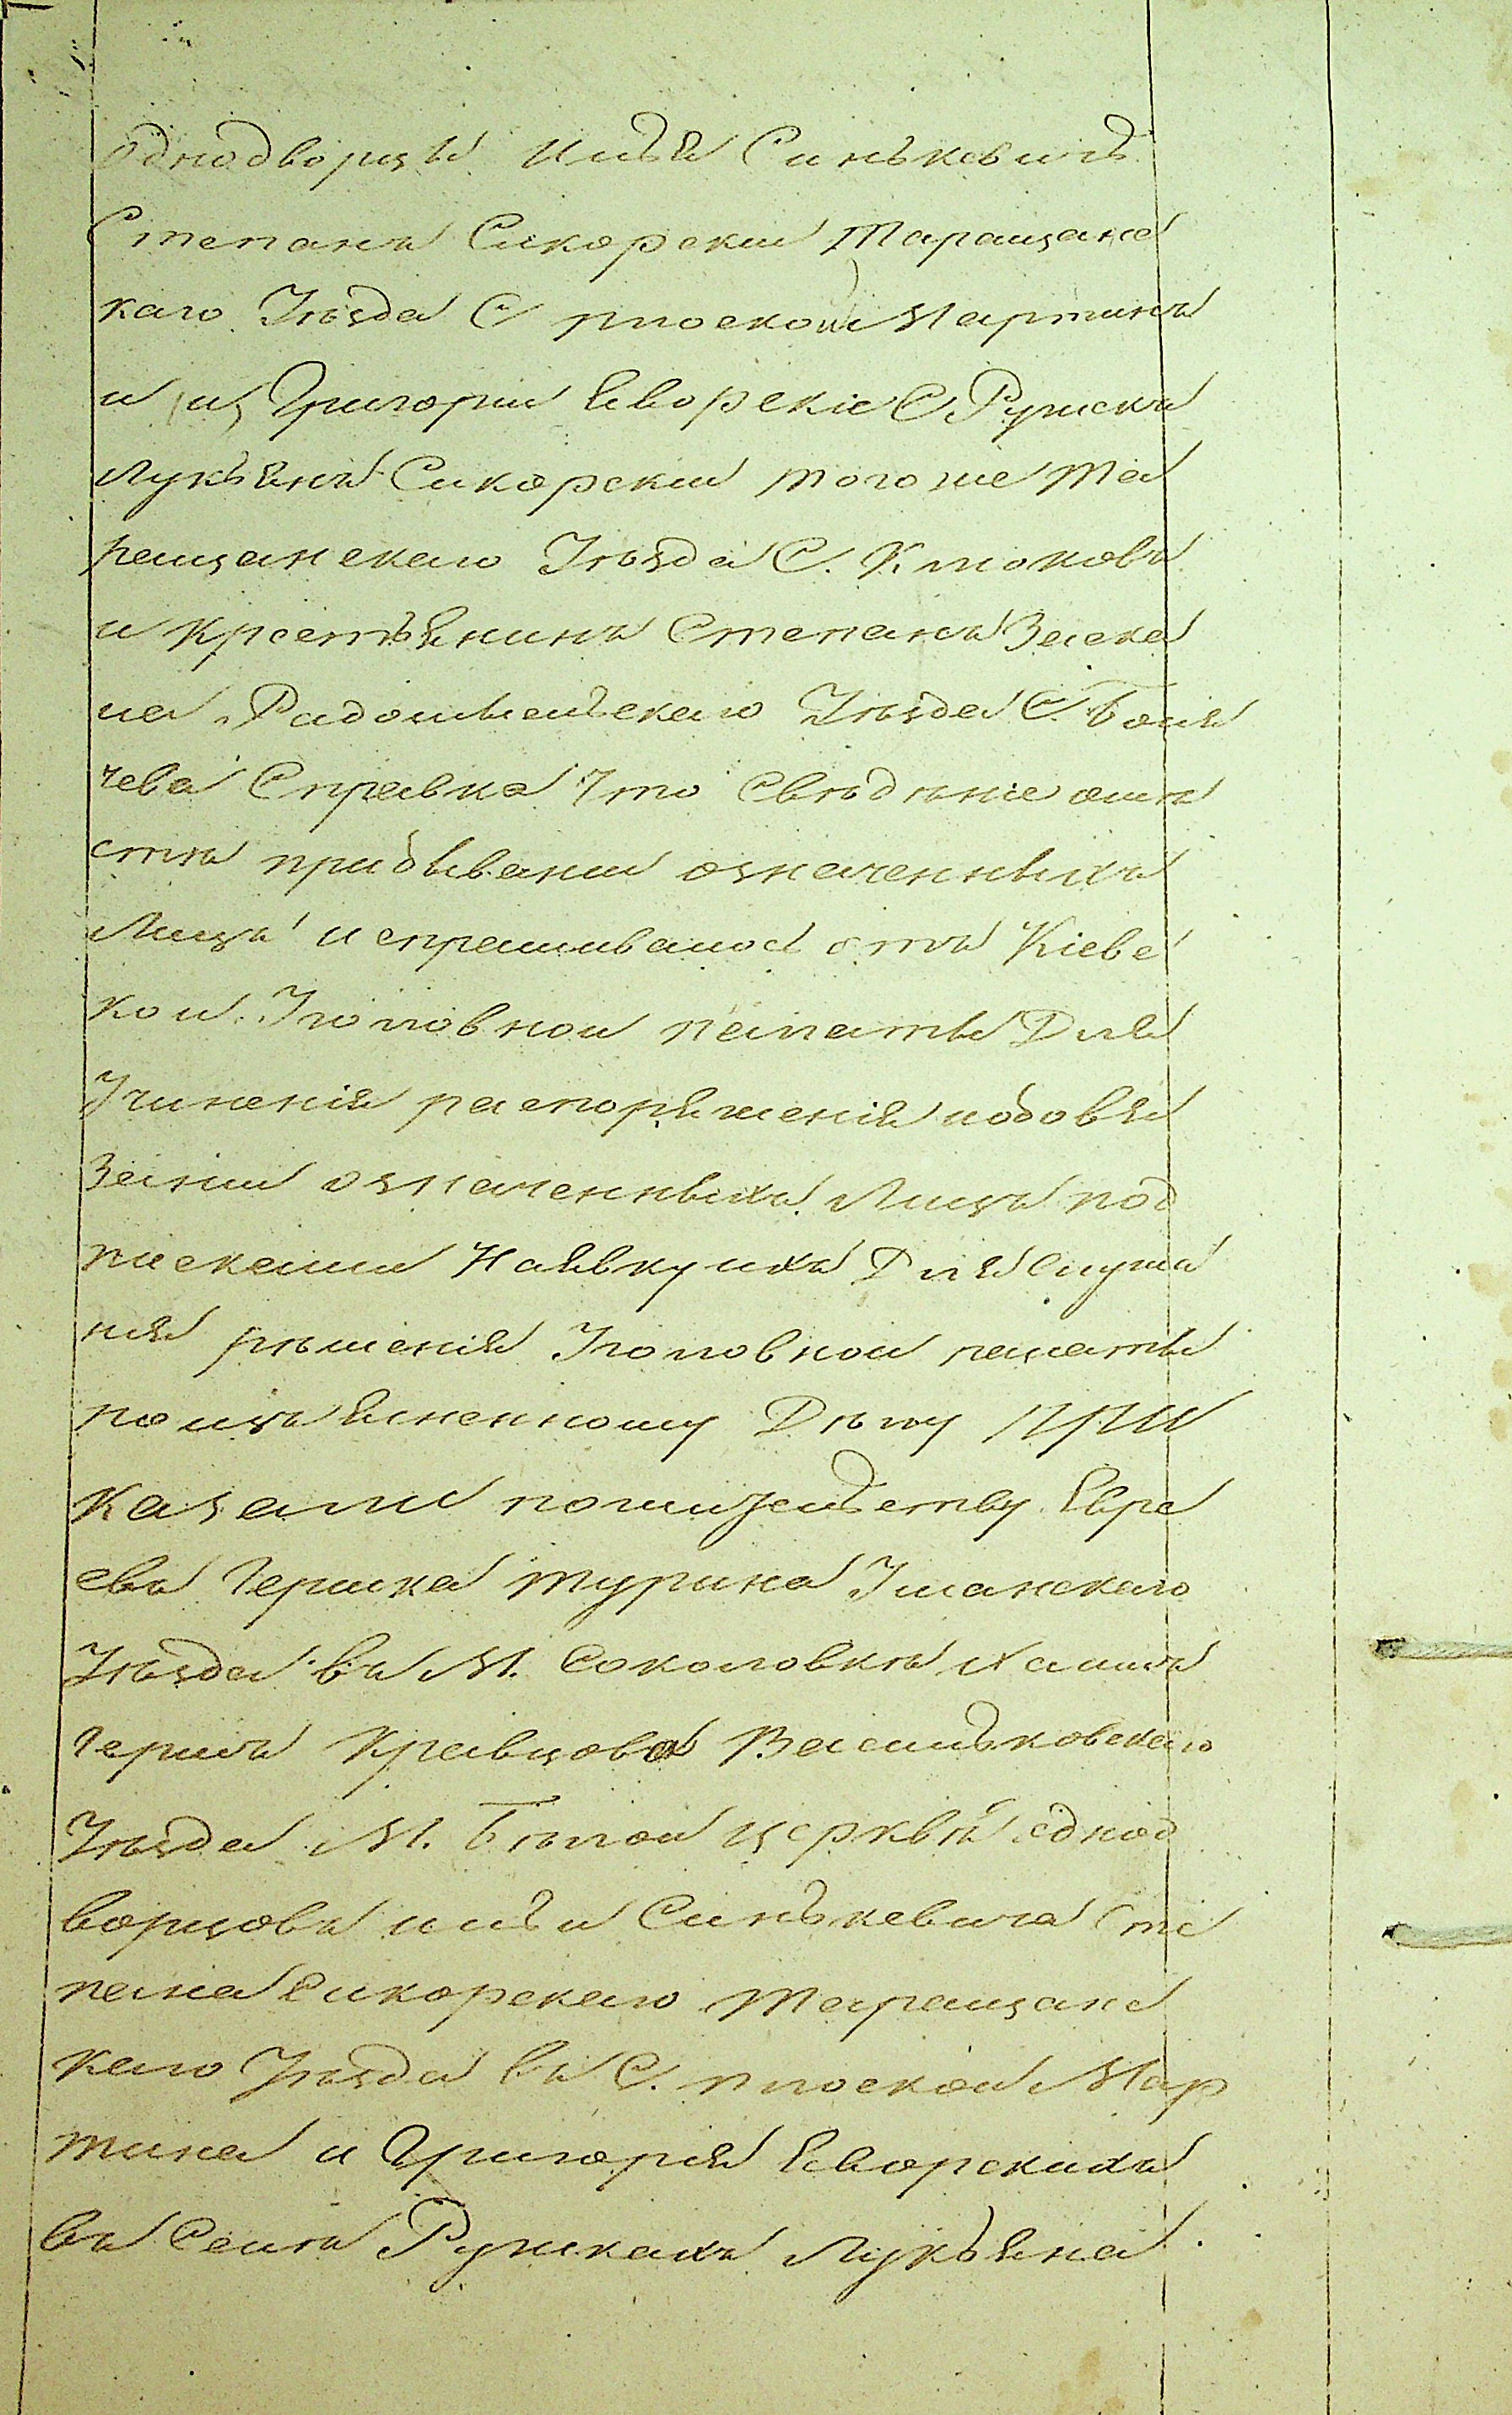 Однодворцы Илья Синькевичъ
Степанъ Сикорскій Таращанс
каго Уѣзда С плоской Мартинъ
и Григорій Яворскіе С Ружекъ
Лукьянъ Сикорскій того же Та
ращанскаго Уѣзда С. Клюковъ
и Крестьянинъ Степанъ Заека
на Радомысльскаго Уѣзда С.
чева Справка Что Свѣдѣніе омѣ
стѣ прибыванiи означенныхъ
Лицъ испрашивалос отъ Кіевс
кой Уголовной палаты Для
Учиненія распоряженія побовя
заніи означенныхъ Лицъ под
писками Наявку ихъ Для Слуша
нія рѣшенія Уголовной палаты
по изъясненному Дѣлу ПРИ
КАЗАЛИ пожительству Евре
евъ Гершка Турина Уманскаго
Уѣзда въ М. Соколовкѣ Хаима
Герша Кравцова Васильковскаго
Уѣзда М. Бѣлой церквѣ однод
ворцовъ ильи Синькевича Сте
пана Сикорскаго Таращанс
каго Уѣзда въ С. плоской Мар
тина и Григорія Яворскихъ
въ Селѣ Ружкахъ Лукьяна